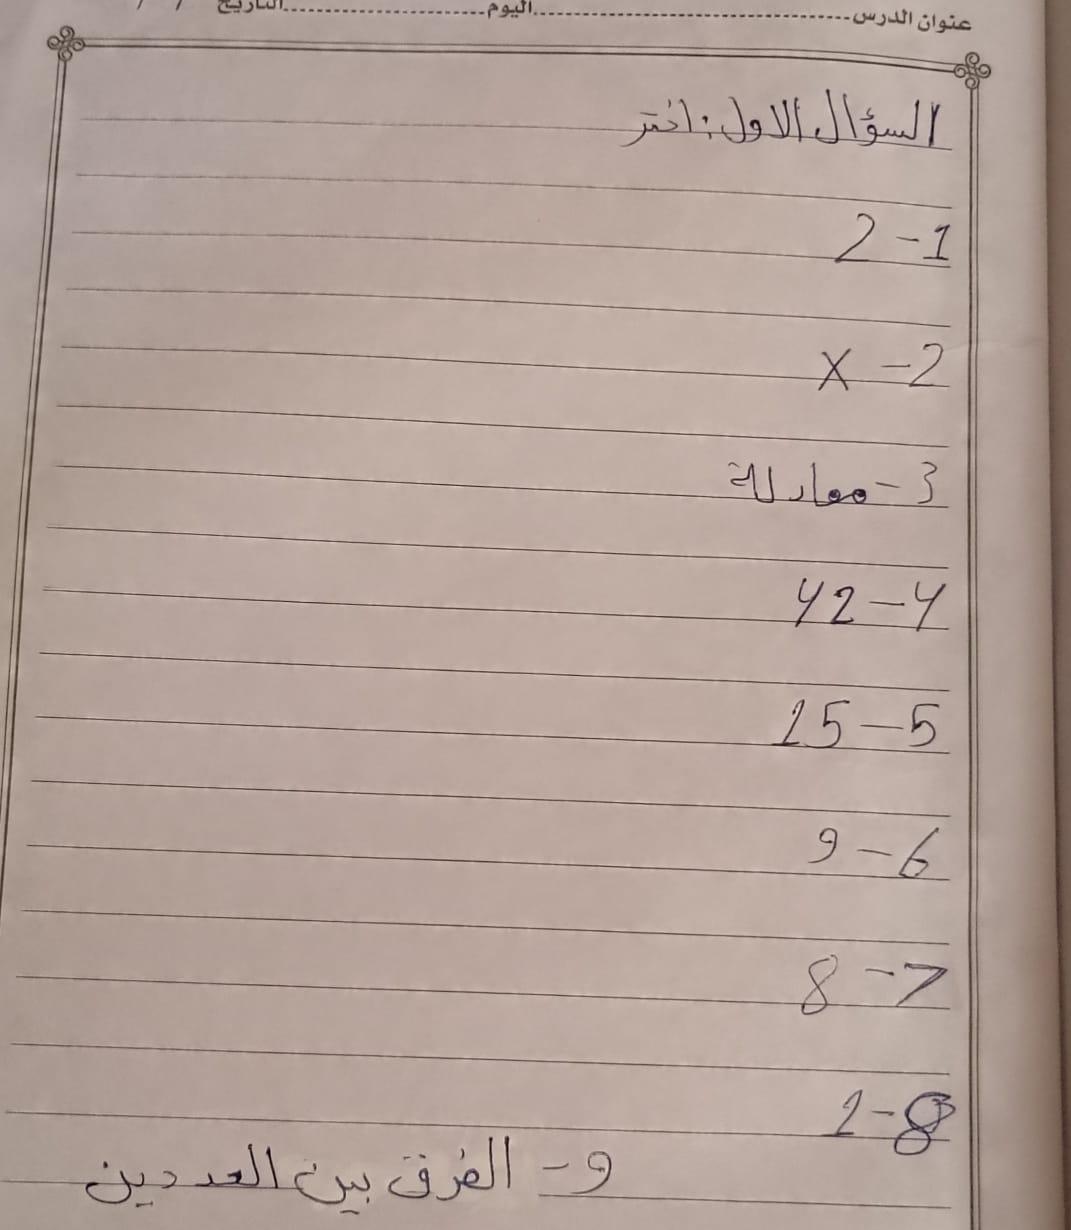 عنوان الدرس اليوم التاريخ / /
السؤال الاول : اختر
1 - 2
2 - x
3 - معادلة
4 - 42
5 - 15
6 - 9
7 - 8
8 - 1
9 - الفرق بين العددين